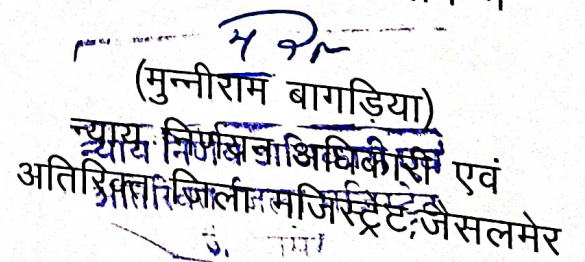 (मुन्नीराम बागड़िया)
न्याय निर्णयन अधिकारी एवं
अतिरिक्त जिला मजिस्ट्रेट, जैसलमेर